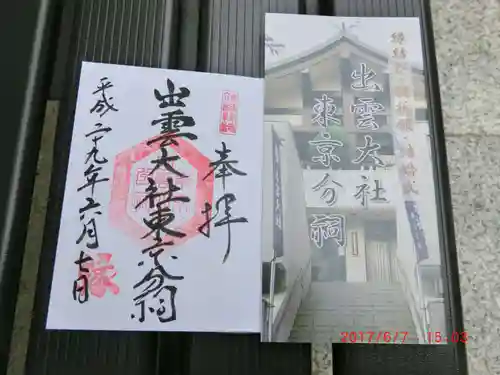 奉拝
出雲大社東京分祠
平成二十九年六月七日
縁
出雲大社
東京分祠
2017/6/7 15:03